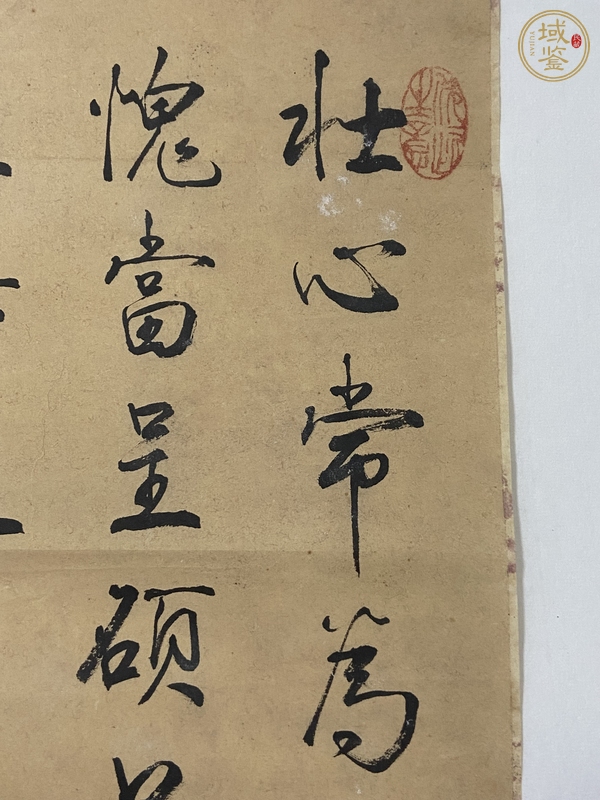 壮心常為
愧當呈碩
域鑒
YUJIAN